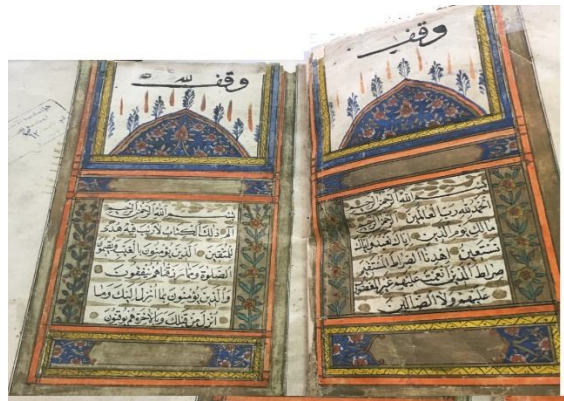 وقف
بسم الله الرحمن الرحيم
الحمد لله رب العالمين الرحمن الرحيم
مالك يوم الدين اياك نعبد واياك
نستعين اهدنا الصراط المستقيم
صراط الذين انعمت عليهم غير المغضوب
عليهم ولا الضالين
وقف لله
بسم الله الرحمن الرحيم
الم ذلك الكتاب لا ريب فيه هدى
للمتقين الذين يؤمنون بالغيب ويقيمون
الصلوة ومما رزقناهم ينفقون
والذين يؤمنون بما انزل اليك وما
انزل من قبلك وبالاخرة هم يوقنون